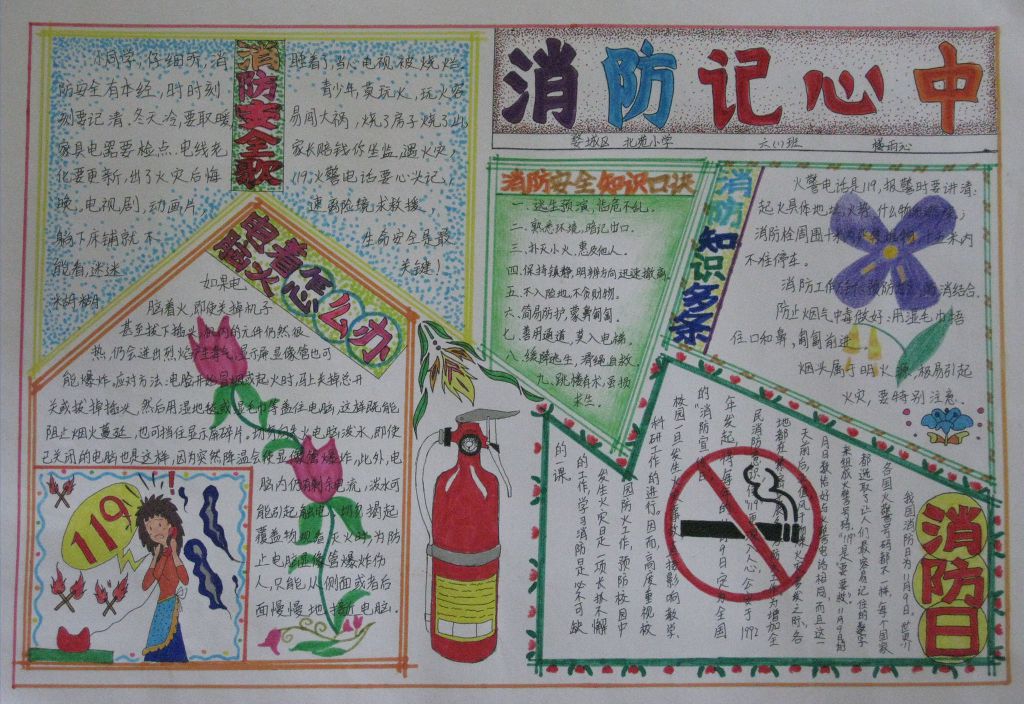 消防记心中
婺城区 北苑小学 六(1)班
消防安全歌
小同学,仔细听,消
防安全有本经,时时刻
刻要记清。冬天冷,要取暖
家具电器要检点。电线老
化要更新,出了火灾后悔
晚。电视剧,动画片,
躺下床铺就不
能看,迷迷
糊糊
睡着了,当心电视被烧烂
青少年,莫玩火,玩火容
易闯大祸,烧了房子烧了山
家长赔钱你坐监。遇火灾,
119,火警电话要心头记,
速离险境求救援,
生命安全是最
关键!
电脑着火怎么办
如果电
脑着火,即使关掉机子
甚至拔下插头,机内的元件仍然很
热,仍会迸出烈焰产生毒气,显示屏显像管也可
能爆炸。应对方法:电脑开始冒烟或起火时,马上关掉总开
关或拔掉插头,然后用湿地毯或湿毛巾等盖住电脑,这样既能
阻止烟火蔓延,也可挡住显示屏碎片。切勿向失火电脑泼水,即使
已关闭的电脑也是这样,因为突然降温会使显像管爆炸。此外,电
脑内仍有剩余电流,泼水可
能引起触电。切勿揭起
覆盖物观看灭火时,为防
止电脑显像管爆炸伤
人,只能从侧面或者后
面慢慢地接近电脑。
119
消防安全知识口诀
一、逃生预演,临危不乱。
二、熟悉环境,暗记出口。
三、扑灭小火,惠及他人。
四、保持镇静,明辨方向迅速撤离。
五、不入险地,不贪财物。
六、简易防护,蒙鼻匍匐。
七、善用通道,莫入电梯。
八、缓降逃生,滑绳自救。
九、跳楼有术,虽损
求生。
消防知识多条
火警电话是119,报警时要讲清
起火具体地址,火势,什么物
消防栓周围十米内
不准停车。
消防工作方针:预防为主,防消结合。
防止烟气中毒做好:用湿毛巾捂
住口和鼻,匍匐前进。
烟头属于明火源,极易引起
火灾,要特别注意。
消防日
我国消防日为11月9日。世界
各国火警号码都不一样,每个国家
都选取了让人们最容易记住的数字
来组成火警号码。
月日数恰好与火警电话号码相同,而且这一
天前后,
民消防意识,使“119”更深入人心,公安部于1992
年发起,将每年的11月9日定为全国
的“消防宣
校园一旦发生火
科研工作的进行。因而,高度重视校
园防火工作,预防校园中
发生火灾是一项长抓不懈
的工作,学习消防是必不可缺
的一课。